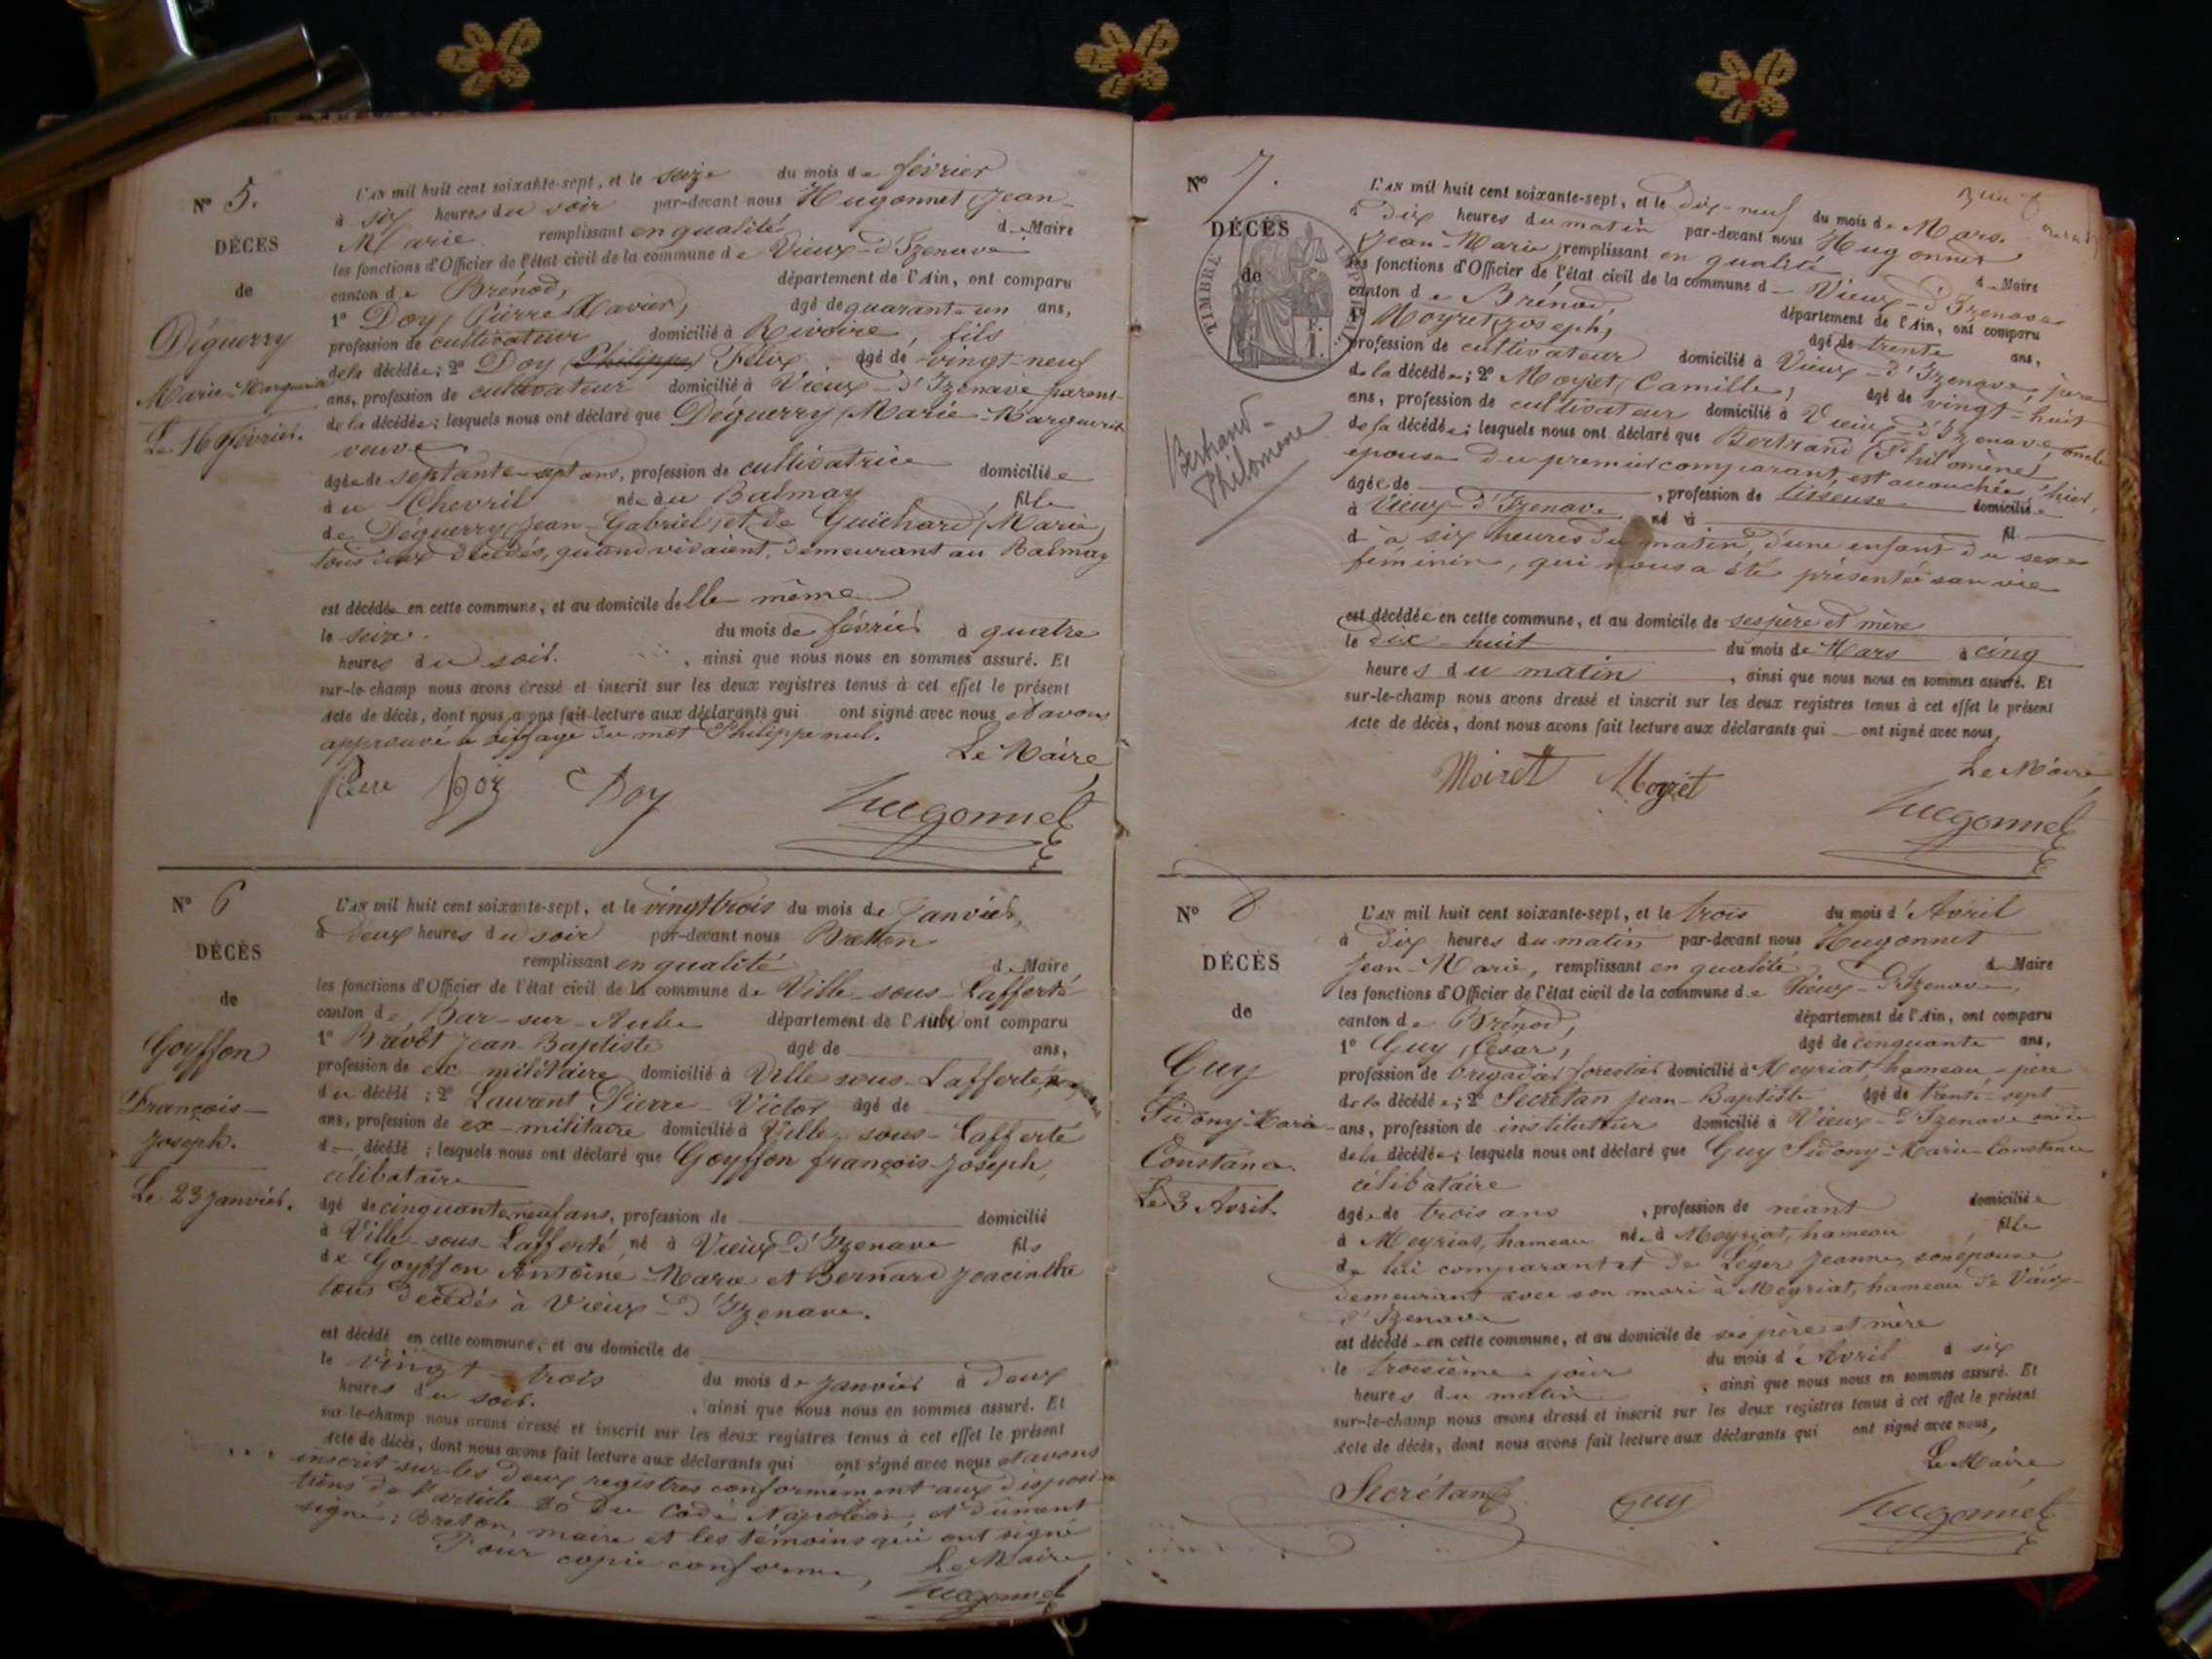 N° 5.
DÉCÈS
de
Déguerry
Marie-Marguerite
Le 16 février.
L'AN mil huit cent soixante-sept, et le seize du mois de février
à six heures du soir par-devant nous Hugonnet (Jean-
Marie remplissant en qualité de Maire
les fonctions d'Officier de l'état civil de la commune de Vieux-d'Izenave
canton de Brénod, département de l'Ain, ont comparu
1° Doy (Pierre Xavier) âgé de quarante un ans,
profession de cultivateur domicilié à Rivoire, fils
de la décédée; 2° Doy (Philippe) Félix âgé de vingt-neuf
ans, profession de cultivateur domicilié à Vieux-d'Izenave parent
de la décédée; lesquels nous ont déclaré que Déguerry (Marie-Marguerite
veuve
âgée de septante-sept ans, profession de cultivatrice domiciliée
au Chevril née au Balmay fille
de Déguerry (Jean-Gabriel) et de Guichard (Marie)
tous deux décédés, quand vivaient, demeurant au Balmay
est décédée en cette commune, et au domicile d'elle même
le seize du mois de février à quatre
heures du soir. , ainsi que nous nous en sommes assuré. Et
sur-le-champ nous avons dressé et inscrit sur les deux registres tenus à cet effet le présent
Acte de décès, dont nous avons fait lecture aux déclarants qui ont signé avec nous et avons
approuvé le biffage du mot Philippe nul.
Le Maire
Pierre Doy Doy Hugonnet
N° 6
DÉCÈS
de
Goyffon
François-
Joseph.
Le 23 janvier.
L'AN mil huit cent soixante-sept, et le vingt trois du mois de Janvier,
à deux heures du soir par-devant nous Bretton
remplissant en qualité de Maire
les fonctions d'Officier de l'état civil de la commune de Ville-sous-Lafferté
canton de Bar-sur-Aube département de l'Aube ont comparu
1° Brévot Jean-Baptiste âgé de ans,
profession de ex militaire domicilié à Ville sous-Lafferté
du décédé; 2° Laurant Pierre-Victor âgé de
ans, profession de ex-militaire domicilié à Ville-sous-Lafferté
d décédé; lesquels nous ont déclaré que Goyffon françois-Joseph,
célibataire
âgé de cinquante neuf ans, profession de domicilié
à Ville-sous-Lafferté né à Vieux-d'Izenave fils
de Goyffon Antoine-Marie et Bernard Joacinthe
tous décédés à Vieux-d'Izenave.
est décédé en cette commune, et au domicile de
le vingt trois du mois de Janvier à deux
heures du soir. , ainsi que nous nous en sommes assuré. Et
sur-le-champ nous avons dressé et inscrit sur les deux registres tenus à cet effet le présent
Acte de décès, dont nous avons fait lecture aux déclarants qui ont signé avec nous et avons
inscrit sur les deux registres conformément aux disposi-
tions de l'article 80 du Code Napoléon, et dûment
signé; Breton, maire et les témoins qui ont signé
Pour copie conforme, Le Maire
Hugonnet
N° 7.
DÉCÈS
de
TIMBRE IMPÉRIAL
1 F.
Bertrand-
Philomène
L'AN mil huit cent soixante-sept, et le dix-neuf du mois de Mars.
à Dix heures du matin par-devant nous Hugonnet
(Jean-Marie) remplissant en qualité de Maire
les fonctions d'Officier de l'état civil de la commune d Vieux-d'Izenave
canton de Brénod, département de l'Ain, ont comparu
1° Moyret (Joseph) âgé de trente ans,
profession de cultivateur domicilié à Vieux-d'Izenave, père
de la décédée; 2° Moyret (Camille) âgé de vingt-huit
ans, profession de cultivateur domicilié à Vieux-d'Izenave, oncle
de la décédée; lesquels nous ont déclaré que Bertrand (Philomène)
épouse du premier comparant, est accouchée, hier,
âgée de , profession de tisseuse domiciliée
à Vieux-d'Izenave né à fil
d à six heures du matin, d'une enfant du sexe
féminin, qui nous a été présentée san vie
est décédée en cette commune, et au domicile de ses père et mère
le dix-huit du mois de Mars à cinq
heures du matin , ainsi que nous nous en sommes assuré. Et
sur-le-champ nous avons dressé et inscrit sur les deux registres tenus à cet effet le présent
Acte de décès, dont nous avons fait lecture aux déclarants qui ont signé avec nous,
Le Maire
Moiret Moyret Hugonnet
N° 8
DÉCÈS
de
Guy
Sidony-Marie-
Constance
Le 3 Avril.
L'AN mil huit cent soixante-sept, et le trois du mois d'Avril
à dix heures du matin par-devant nous Hugonnet
Jean-Marie, remplissant en qualité de Maire
les fonctions d'Officier de l'état civil de la commune de Vieux-d'Izenave,
canton de Brénod, département de l'Ain, ont comparu
1° Guy (César) âgé de cinquante ans,
profession de brigadier forestier domicilié à Meyriat, hameau père
de la décédée; 2° Secrétan Jean-Baptiste âgé de trente-sept
ans, profession de instituteur domicilié à Vieux-d'Izenave
de la décédée; lesquels nous ont déclaré que Guy Sidony-Marie-Constance
célibataire
âgée de trois ans , profession de néant domiciliée
à Meyriat, hameau née à Meyriat, hameau fille
de lui comparant et de Léger Jeanne, son épouse
demeurant avec son mari à Meyriat, hameau de Vieux-
d'Izenave
est décédée en cette commune, et au domicile de ses père et mère
le troisième jour du mois d'Avril à six
heures du matin , ainsi que nous nous en sommes assuré. Et
sur-le-champ nous avons dressé et inscrit sur les deux registres tenus à cet effet le présent
Acte de décès, dont nous avons fait lecture aux déclarants qui ont signé avec nous,
Le Maire
Secrétan Guy Hugonnet